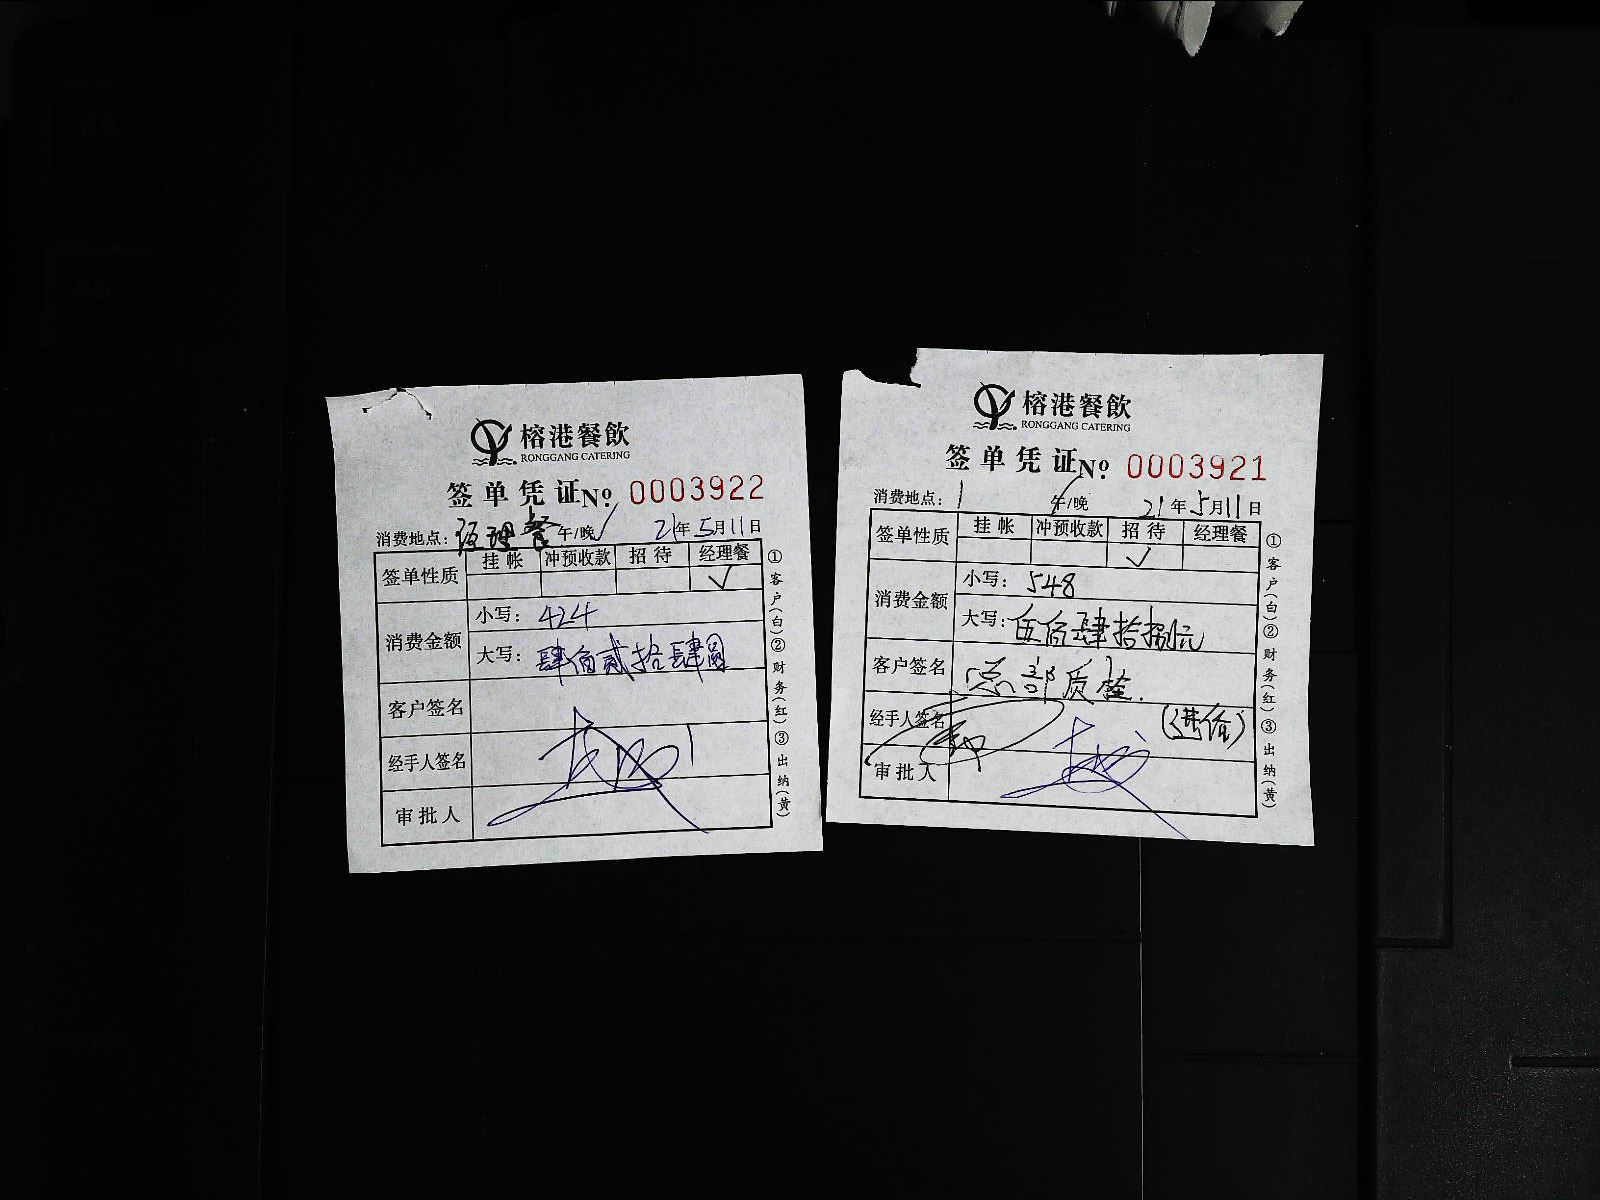 榕港餐飲
RONGGANG CATERING
签单凭证 No. 0003922
消费地点: 经理餐 午/晚✓ 21年5月11日
签单性质 挂帐 冲预收款 招待 经理餐
✓
消费金额 小写: 424
大写: 肆佰贰拾肆圆
客户签名
经手人签名
审批人
①客户(白)②财务(红)③出纳(黄)
榕港餐飲
RONGGANG CATERING
签单凭证 No. 0003921
消费地点: 1 午/晚 21年5月11日
签单性质 挂帐 冲预收款 招待 经理餐
✓
消费金额 小写: 548
大写: 伍佰肆拾捌元
客户签名 总部质检.
经手人签名
审批人
①客户(白)②财务(红)③出纳(黄)